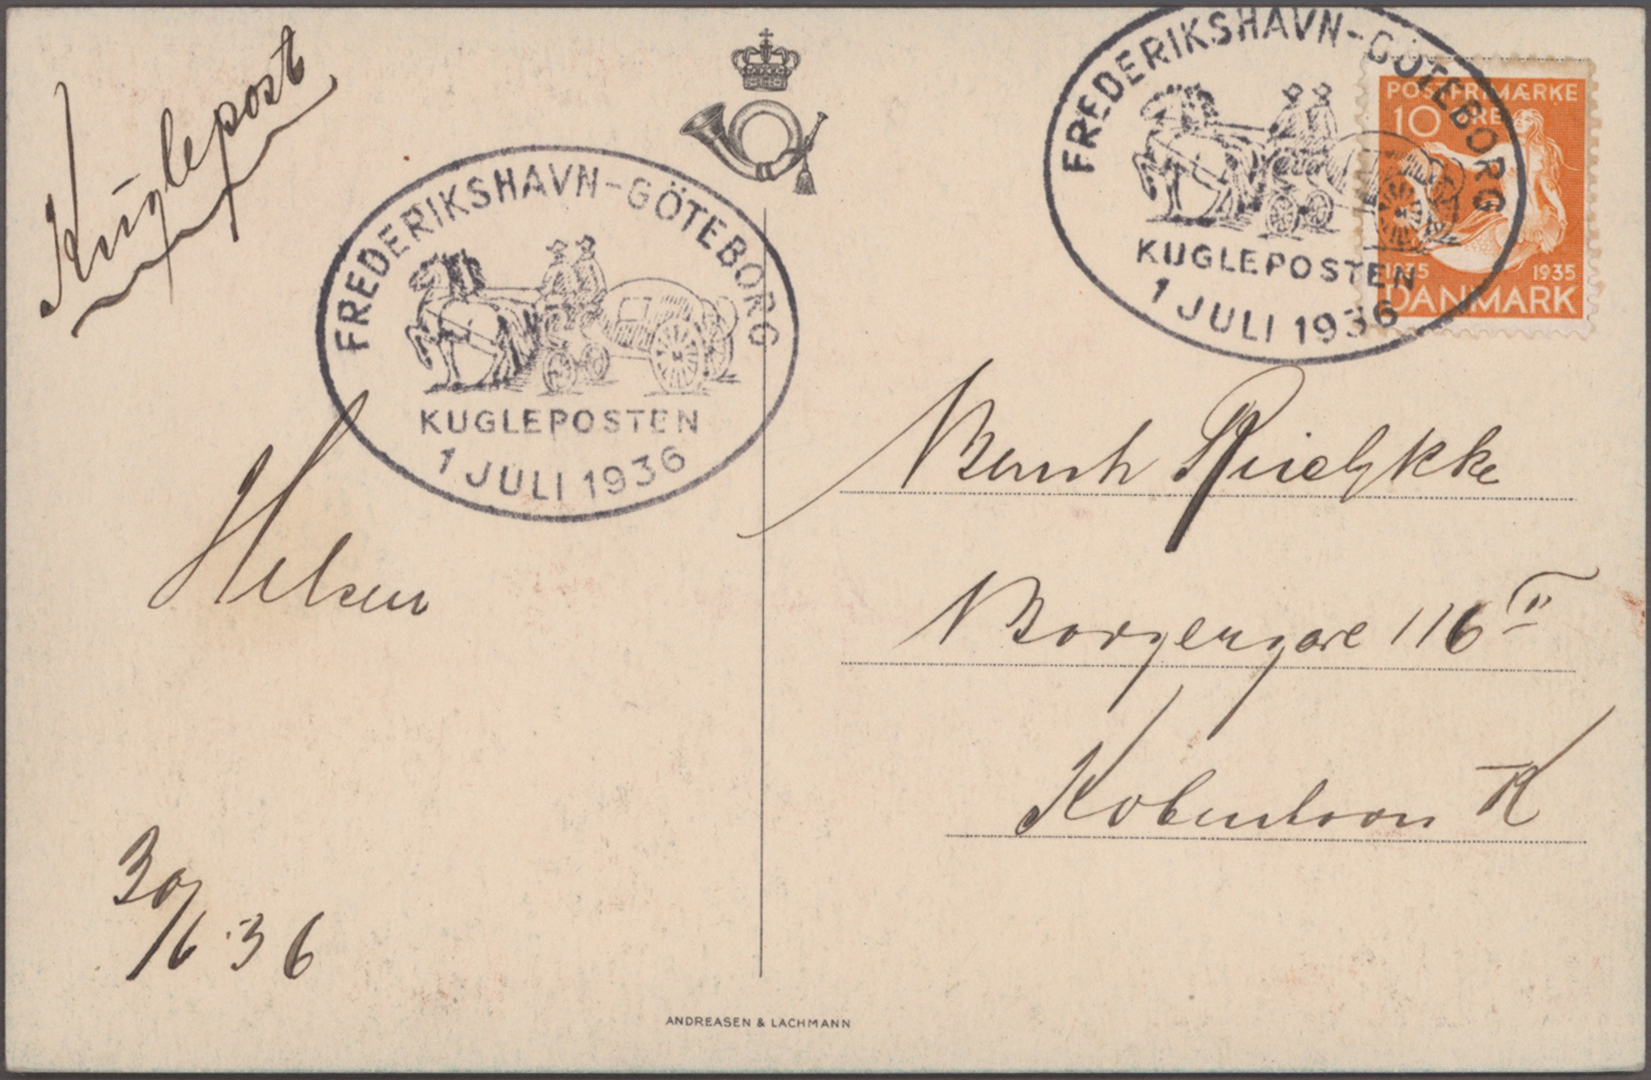 Kuglepost
FREDERIKSHAVN-GÖTEBORG
KUGLEPOSTEN
1 JULI 1936
FREDERIKSHAVN-GÖTEBORG
KUGLEPOSTEN
1 JULI 1936
POSTFRIMÆRKE
10 ØRE
1935 1935
DANMARK
Hilsen
30/6·36
Bernh
Borgergade 116 II
København K
ANDREASEN & LACHMANN